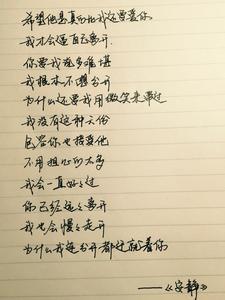 希望他是真的比我还要爱你
我才会逼自己离开
你要我说多难堪
我根本不想分开
为什么还要我用微笑来带过
我没有这种天份
包容你也接受他
不用担心的太多
我会一直好好过
你已经远远离开
我也会慢慢走开
为什么我连分开都迁就着你
——《安静》